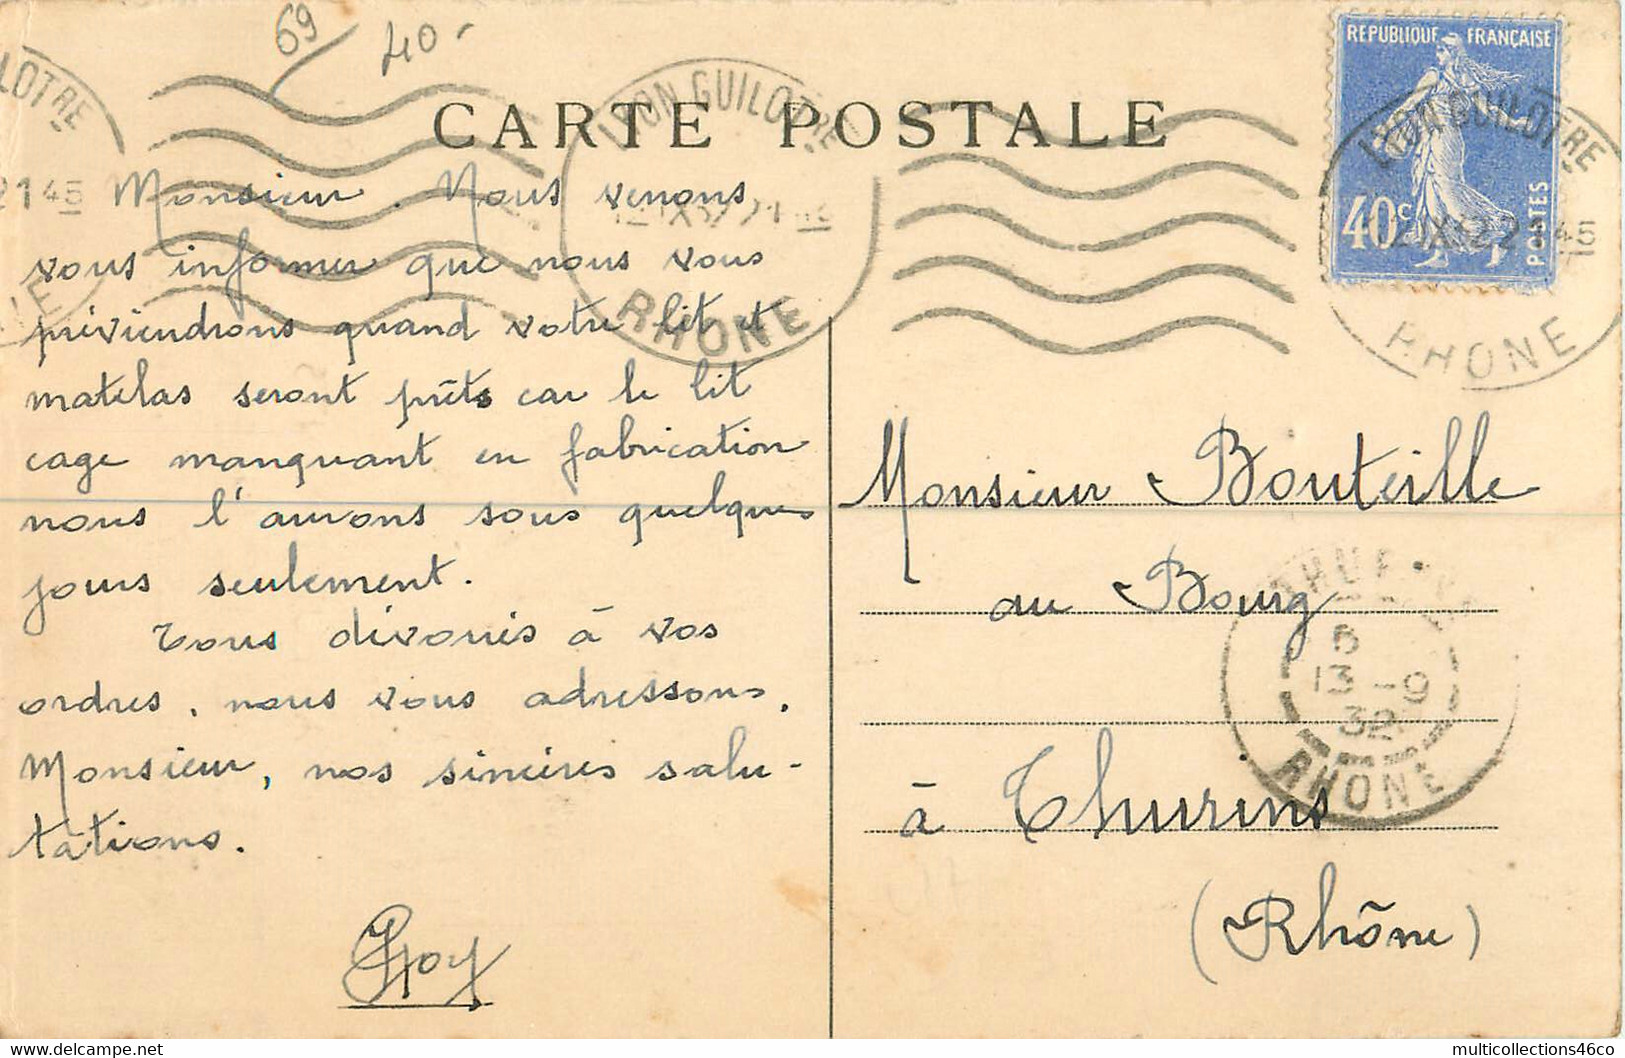 69
40
CARTE POSTALE
REPUBLIQUE FRANÇAISE
40c
POSTES
LYON GUILOTRE
RHONE
LYON GUILOTRE
RHONE
LOTRE
21 45
Monsieur. Nous venons
vous informer que nous vous
préviendrons quand votre lit et
matelas seront prêts car le lit
cage manquant en fabrication
nous l'aurons sous quelques
jours seulement.
Tous dévoués à vos
ordres, nous vous adressons,
Monsieur, nos sincères salu-
tations.
Monsieur Bouteille
au Bourg
à Thurins
(Rhône)
13 - 9
32
RHONE
multicollections46co